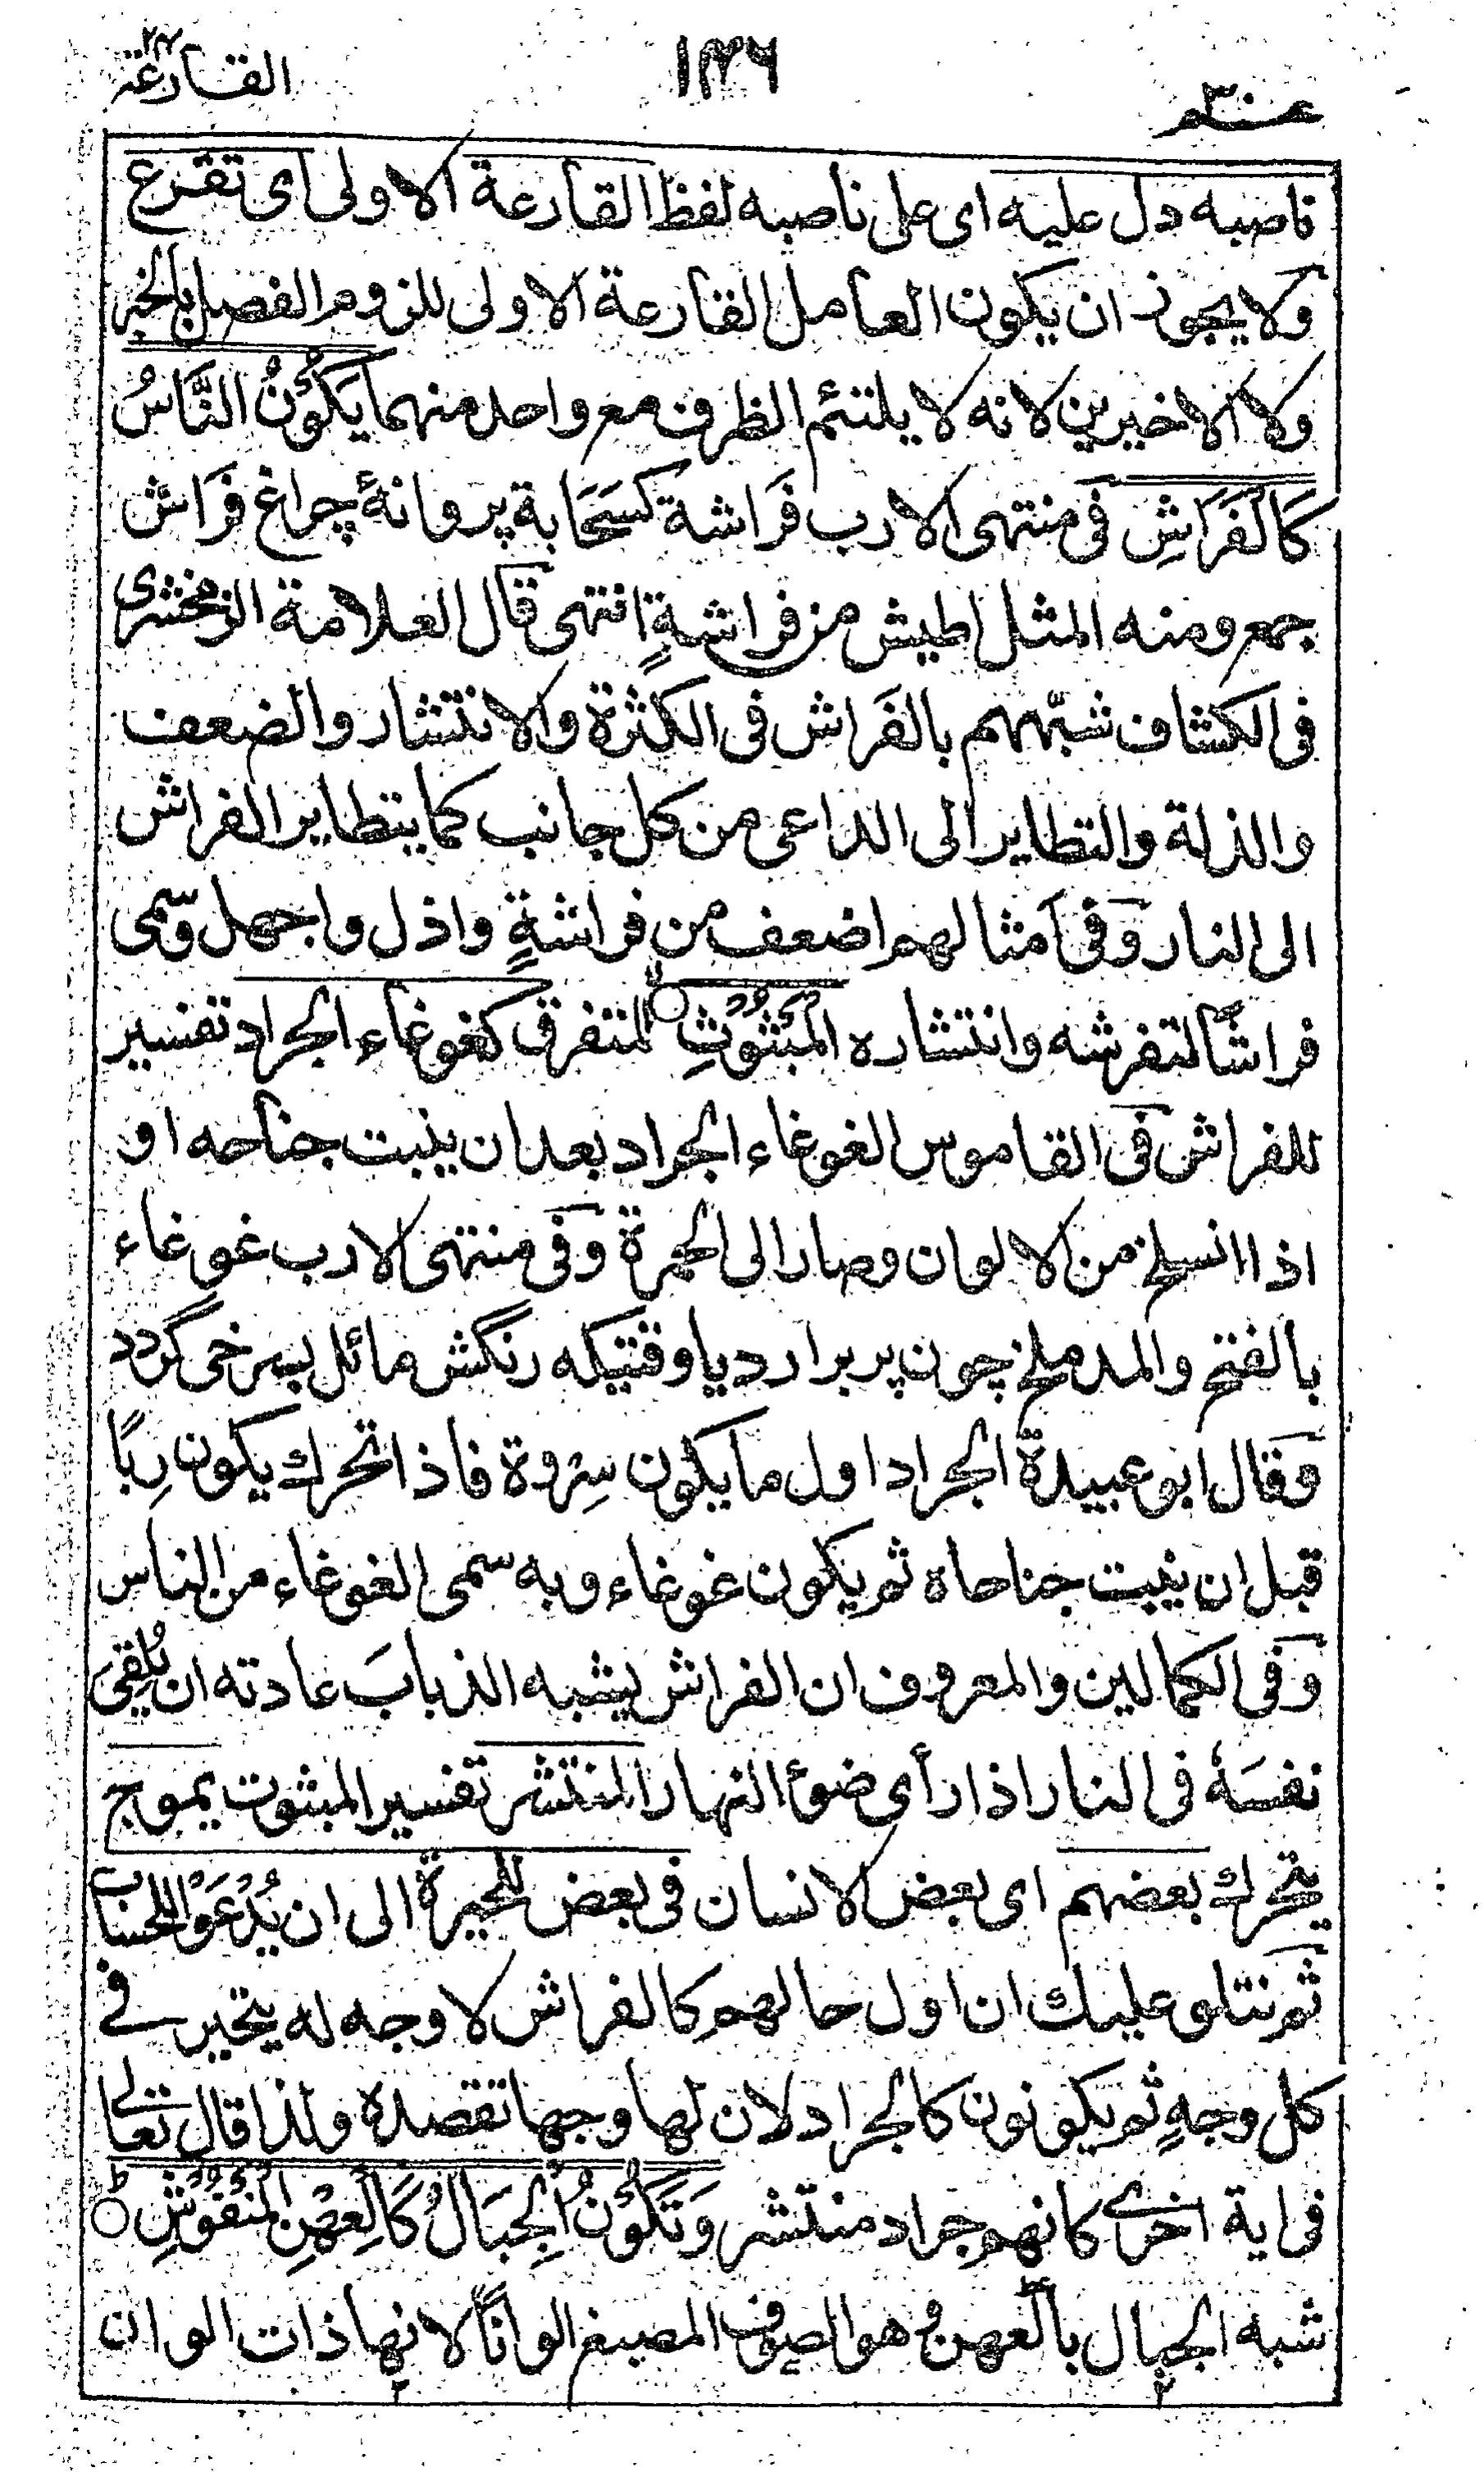 عم ٣٠
١٣٣٦
القارعة
ناصبه دل عليه اى على ناصبه لفظ القارعة الاولى اى تقرع
ولا يجوز ان يكون العامل القارعة الاولى للزوم الفصل بالخبر
ولا الاخيرين لانه لا يلتئم الظرف مع واحد منهما يَكُوْنُ النَّاسُ
كَالْفَرَاشِ فى منتهى الارب فَرَاشة كسَحَابة پروانۀ چراغ فَرَاش
جمع ومنه المثل اطيش من فراشةٍ انتهى قال العلامة الزمخشرى
فى الكشاف شبّههم بالفَراش فى الكثرة والانتشار والضعف
والذلة والتطاير الى الداعى من كل جانب كما يتطاير الفراش
الى النار وفى امثالهم اضعف من فراشةٍ واذل واجهل وسمى
فراشًا لتفرشه وانتشاره الْمَبْثُوْثِ لا المتفرق كغوغاء الجراد تفسير
للفراش فى القاموس الغوغاء الجراد بعد ان ينبت جناحه او
اذا انسلخ من الالوان وصار الى الحمرة وفى منتهى الارب غوغاء
بالفتح والمد ملخ چون پر برارد یا وقتیکه رنگش مائل بسرخی گردد
وقال ابو عبيدة الجراد اول ما يكون سِروة فاذا تحرك يكون رِبًا
قبل ان ينبت جناحاه ثم يكون غوغاء وبه سمى الغوغاء من الناس
وفى الكمالين والمعروف ان الفراش يشبه الذبابَ عادته ان يُلقِىَ
نفسَهٗ فى النار اذا رأى ضوءَ النهار المنتشر تفسير المبثوث يموج
يتحرك بعضهم اى بعض الانسان فى بعض للحيرة الى ان يُدْعَوْا للحساب
ثم نتلو عليك ان اول حالهم كالفراش لا وجه له يتحير فے
كل وجهٍ ثم يكونون كالجراد لان لها وجها تقصده ولذا قال تعالى
فى اية اخرى كانهم جراد منتشر وَتَكُوْنُ الْجِبَالُ كَالْعِهْنِ الْمَنْفُوْشِ ط
شبه الجبال بالعهن وهو الصوف المصبغ الوانًا لانها ذات الوان